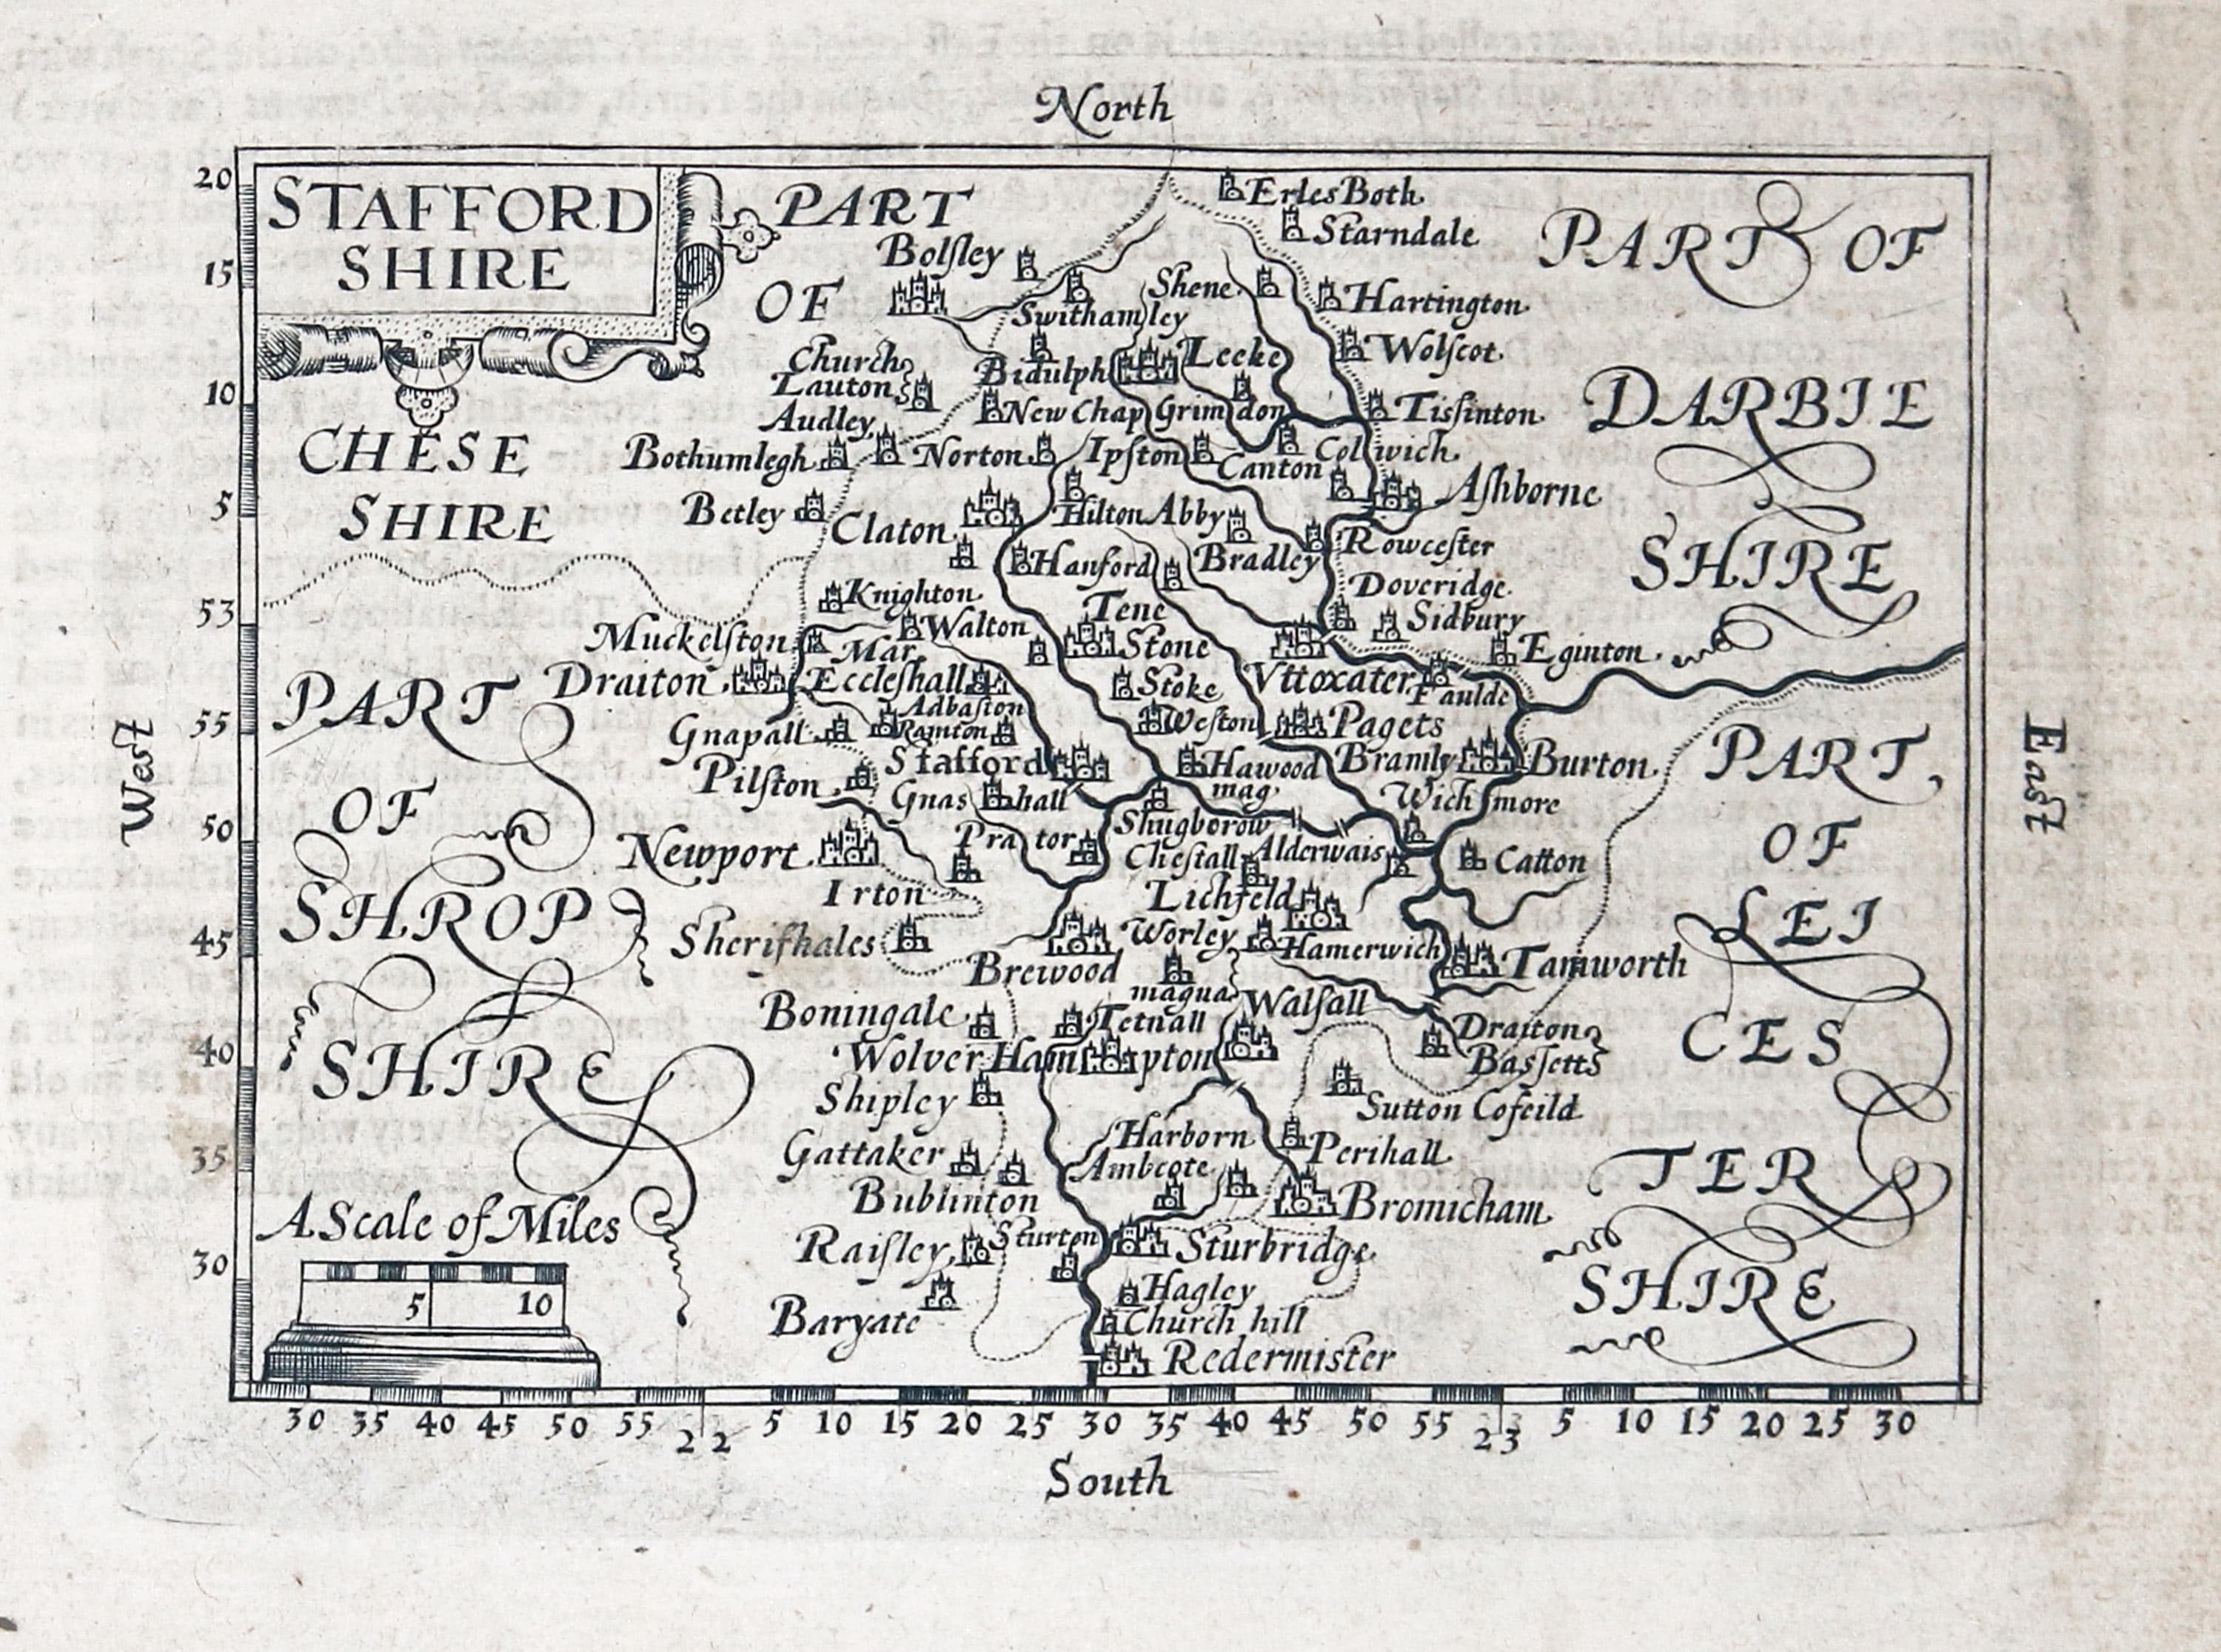 North
STAFFORD
SHIRE
PART
OF
CHESE
SHIRE
Erles Both
Starndale
PART OF
DARBIE
SHIRE
Bolſley
Shene
Hartington
Swithamley
Wolſcot
Church
Lauton
Bidulph
Leeke
Audley
New Chap
Grimſdon
Tiſſinton
Bothumlegh
Norton
Ipſton
Canton
Colwich
Betley
Claton
Hilton Abby
Aſhborne
Hanford
Bradley
Rowceſter
Doveridge
Knighton
Tene
Sidbury
Muckelſton
Walton
Stone
Eginton
Mar
Draiton
Eccleſhall
Stoke
Vttoxater
Faulde
Adbaſton
Gnapall
Ranton
Weſton
Pagets
Bramly
Stafford
Hawood
mag
Burton
Pilſton
Gnashall
Wichmore
Newport
Prator
Shugborow
Cheſtall
Alderwais
Catton
Irton
Lichfeld
Sherifhales
Worley
Hamerwich
Brewood
magna
Tamworth
Boningale
Tetnall
Walſall
Draiton
Baſſetts
Wolver Hampton
Shipley
Sutton Cofeild
Gattaker
Harborn
Perihall
Ambcote
Bublinton
Bromicham
Raiſley
Sturton
Sturbridge
Baryate
Hagley
Church hill
Redermister
PART
OF
SHROP
SHIRE
PART
OF
LEI
CES
TER
SHIRE
West
East
A Scale of Miles
5 10
20
15
10
5
53
55
50
45
40
35
30
30 35 40 45 50 55 22 5 10 15 20 25 30 35 40 45 50 55 23 5 10 15 20 25 30
South